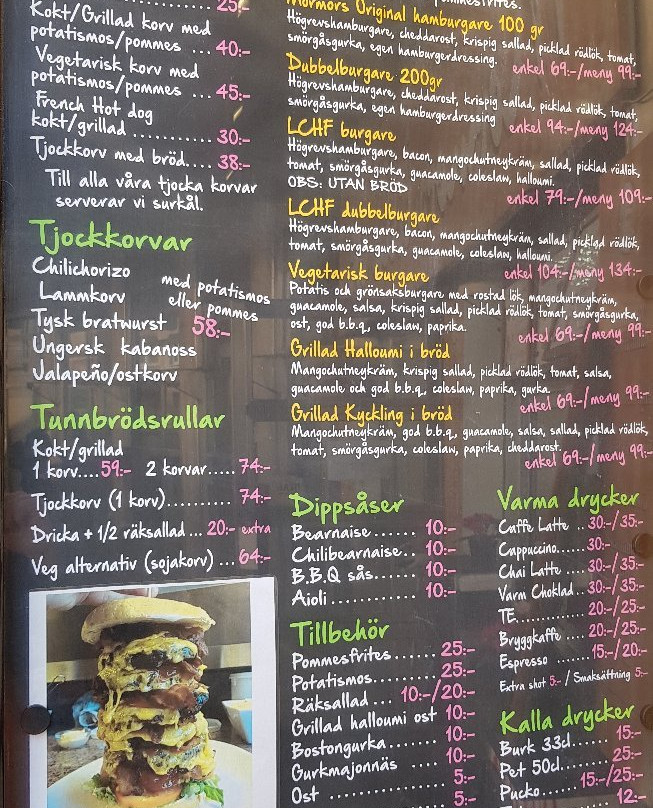 25:-
Kokt/Grillad korv med
potatismos/pommes ... 40:-
Vegetarisk korv med
potatismos/pommes ... 45:-
French Hot dog
kokt/grillad .......... 30:-
Tjockkorv med bröd.... 38:-
Till alla våra tjocka korvar
serverar vi surkål.
Tjockkorvar
Chilichorizo
Lammkorv
Tysk bratwurst
Ungersk kabanoss
Jalapeño/ostkorv
med potatismos
eller pommes
58:-
Tunnbrödsrullar
Kokt/grillad
1 korv....59:- 2 korvar..... 74:-
Tjockkorv (1 korv).......... 74:-
Dricka + 1/2 räksallad ... 20:- extra
Veg alternativ (sojakorv) ... 64:-
Mormors Original hamburgare 100 gr
Högrevshamburgare, cheddarost, krispig sallad, picklad rödlök, tomat,
smörgåsgurka, egen hamburgerdressing.
enkel 69:-/meny 99:-
Dubbelburgare 200gr
Högrevshamburgare, cheddarost, krispig sallad, picklad rödlök, tomat,
smörgåsgurka, egen hamburgerdressing
enkel 94:-/meny 124:-
LCHF burgare
Högrevshamburgare, bacon, mangochutneykräm, sallad, picklad rödlök,
tomat, smörgåsgurka, guacamole, coleslaw, halloumi.
OBS: UTAN BRÖD
enkel 79:-/meny 109:-
LCHF dubbelburgare
Högrevshamburgare, bacon, mangochutneykräm, sallad, picklad rödlök,
tomat, smörgåsgurka, guacamole, coleslaw, halloumi.
enkel 104:-/meny 134:-
Vegetarisk burgare
Potatis och grönsaksburgare med rostad lök, mangochutneykräm,
guacamole, salsa, krispig sallad, picklad rödlök, tomat, smörgåsgurka,
ost, god b.b.q, coleslaw, paprika.
enkel 69:-/meny 99:-
Grillad Halloumi i bröd
Mangochutneykräm, krispig sallad, picklad rödlök, tomat, salsa,
guacamole och god b.b.q, coleslaw, paprika, gurka.
enkel 69:-/meny 99:-
Grillad Kyckling i bröd
Mangochutneykräm, god b.b.q, guacamole, salsa, sallad, picklad rödlök,
tomat, smörgåsgurka, coleslaw, paprika, cheddarost.
enkel 69:-/meny 99:-
Dippsåser
Bearnaise....... 10:-
Chilibearnaise.. 10:-
B.B.Q sås....... 10:-
Aioli ........... 10:-
Tillbehör
Pommesfrites ...... 25:-
Potatismos......... 25:-
Räksallad... 10:-/20:-
Grillad halloumi ost 10:-
Bostongurka....... 10:-
Gurkmajonnäs .... 10:-
Ost ............... 5:-
5:-
Varma drycker
Caffe Latte .. 30:-/35:-
Cappuccino...... 30:-
Chai Latte ... 30:-/35:-
Varm Choklad.. 30:-/35:-
TE........... 20:-/25:-
Bryggkaffe ... 20:-/25:-
Espresso .... 15:-/20:-
Extra shot 5:- / Smaksättning 5:-
Kalla drycker
Burk 33cl....... 15:-
Pet 50cl........ 25:-
Pucko...... 15:-/25:-
12:-